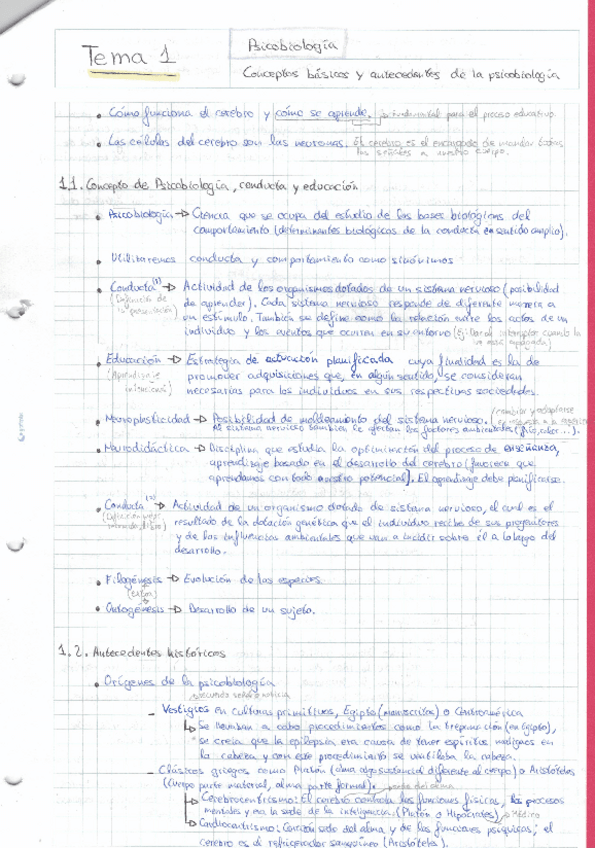 Tema 1
Psicobiología
Conceptos básicos y antecedentes de la psicobiología
• Cómo funciona el cerebro y cómo se aprende. fundamental para el proceso educativo.
• Las células del cerebro son las neuronas. El cerebro es el encargado de mandar todas
las señales a nuestro cuerpo.
1.1. Concepto de Psicobiología, conducta y educación
• Psicobiología → Ciencia que se ocupa del estudio de las bases biológicas del
comportamiento (determinantes biológicos de la conducta en sentido amplio).
• Utilizaremos conducta y comportamiento como sinónimos
• Conducta (1) → Actividad de los organismos dotados de un sistema nervioso (posibilidad
(Definición de la presentación) de aprender). Cada sistema nervioso responde de diferente manera a
un estímulo. También se define como la relación entre los actos de un
individuo y los eventos que ocurren en su entorno
• Educación → Estrategia de actuación planificada cuya finalidad es la de
(Aprendizaje intencional) promover adquisiciones que, en algún sentido, se consideran
necesarias para los individuos en sus respectivas sociedades.
• Neuroplasticidad → Posibilidad de moldeamiento del sistema nervioso. (cambiar y adaptarse
Al sistema nervioso también le afectan los factores ambientales (frío, calor...).
• Neurodidáctica → Disciplina que estudia la optimización del proceso de enseñanza,
aprendizaje basado en el desarrollo del cerebro (favorece que
aprendamos con todo nuestro potencial). El aprendizaje debe planificarse.
• Conducta (2) → Actividad de un organismo dotado de sistema nervioso, el cual es el
resultado de la dotación genética que el individuo recibe de sus progenitores
y de las influencias ambientales que van a incidir sobre él a lo largo del
desarrollo.
• Filogénesis → Evolución de las especies.
• Ontogénesis → Desarrollo de un sujeto.
1.2. Antecedentes históricos
• Orígenes de la psicobiología
– Vestigios en culturas primitivas, Egipto (manuscritos) o Centroamérica
↳ Se llevaban a cabo procedimientos como la trepanación (en Egipto),
se creía que la epilepsia era causa de tener espíritus malignos en
la cabeza y con este procedimiento se ventilaba la cabeza.
– Clásicos griegos como Platón (alma algo sustancial diferente al cuerpo) o Aristóteles
(cuerpo parte material, alma parte formal).
↳ Cerebrocentrismo: El cerebro controla las funciones físicas, los procesos
mentales y era la sede de la inteligencia. (Platón o Hipócrates) → Médico
↳ Cardiocentrismo: Corazón sede del alma y de las funciones psíquicas; el
cerebro es el refrigerador sanguíneo (Aristóteles).